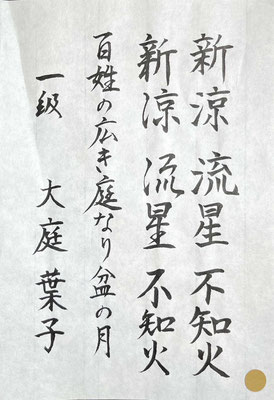 新涼 流星 不知火
新涼 流星 不知火
百姓の広き庭なり盆の月
一級 大庭葉子